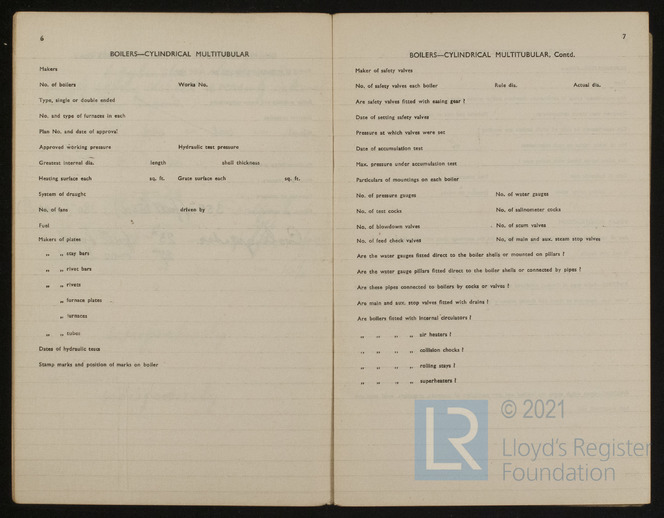 6
BOILERS—CYLINDRICAL MULTITUBULAR
Makers
No. of boilers Works No.
Type, single or double ended
No. and type of furnaces in each
Plan No. and date of approval
Approved working pressure Hydraulic test pressure
Greatest internal dia. length shell thickness
Heating surface each sq. ft. Grate surface each sq. ft.
System of draught
No. of fans driven by
Fuel
Makers of plates
„ „ stay bars
„ „ rivet bars
„ „ rivets
„ furnace plates
„ furnaces
„ „ tubes
Dates of hydraulic tests
Stamp marks and position of marks on boiler
7
BOILERS—CYLINDRICAL MULTITUBULAR, Contd.
Maker of safety valves
No. of safety valves each boiler Rule dia. Actual dia.
Are safety valves fitted with easing gear ?
Date of setting safety valves
Pressure at which valves were set
Date of accumulation test
Max. pressure under accumulation test
Particulars of mountings on each boiler
No. of pressure gauges No. of water gauges
No. of test cocks No. of salinometer cocks
No. of blowdown valves No. of scum valves
No. of feed check valves No. of main and aux. steam stop valves
Are the water gauges fitted direct to the boiler shells or mounted on pillars ?
Are the water gauge pillars fitted direct to the boiler shells or connected by pipes ?
Are these pipes connected to boilers by cocks or valves ?
Are main and aux. stop valves fitted with drains ?
Are boilers fitted with internal circulators ?
„ „ „ „ air heaters ?
„ „ „ „ collision chocks ?
„ „ „ „ rolling stays ?
„ „ „ „ superheaters ?
LR © 2021
Lloyd's Register
Foundation